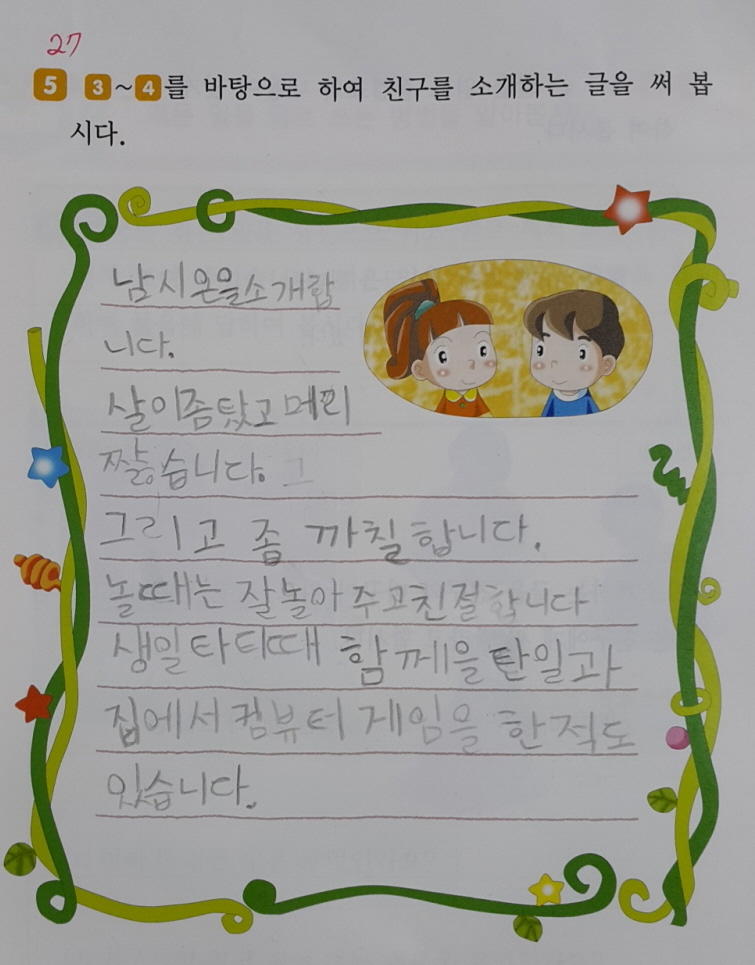 27
5 3~4를 바탕으로 하여 친구를 소개하는 글을 써 봅
시다.
남시온을소개합
니다.
살이좀탔고머리
짧습니다. 그
그리고 좀 까칠합니다.
놀때는 잘놀아주고친절합니다
생일타티때 함께을탄일과
집에서컴뷰터 게임을 한적도
있습니다.